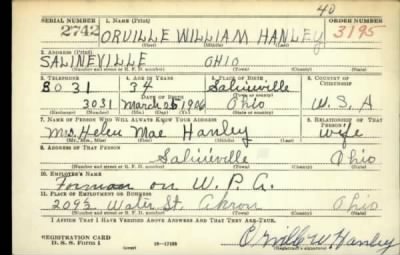 40
SERIAL NUMBER 1. NAME (Print) ORDER NUMBER
2742 ORVILLE WILLIAM HANLEY 3195
(First) (Middle) (Last)
2. ADDRESS (Print)
SALINEVILLE OHIO
(Number and street or R. F. D. number) (Town) (County) (State)
3. TELEPHONE 4. AGE IN YEARS 5. PLACE OF BIRTH 6. COUNTRY OF CITIZENSHIP
8031 34 Salineville
DATE OF BIRTH (Town or county)
3031 March 25 1906 Ohio U.S.A
(Exchange) (No.) (Mo.) (Day) (Yr.) (State or country)
7. NAME OF PERSON WHO WILL ALWAYS KNOW YOUR ADDRESS 8. RELATIONSHIP OF THAT PERSON
Mrs Helen Mae Hanley wife
(Mr., Mrs., Miss) (First) (Middle) (Last)
9. ADDRESS OF THAT PERSON
Salineville Ohio
(Number and street or R. F. D. number) (Town) (County) (State)
10. EMPLOYER'S NAME
Forman on W.P.A.
11. PLACE OF EMPLOYMENT OR BUSINESS
209½ Water St. Akron Ohio
(Number and street or R. F. D. number) (Town) (County) (State)
I AFFIRM THAT I HAVE VERIFIED ABOVE ANSWERS AND THAT THEY ARE TRUE.
REGISTRATION CARD
D. S. S. Form 1 (over) 16-17105 Orville W Hanley